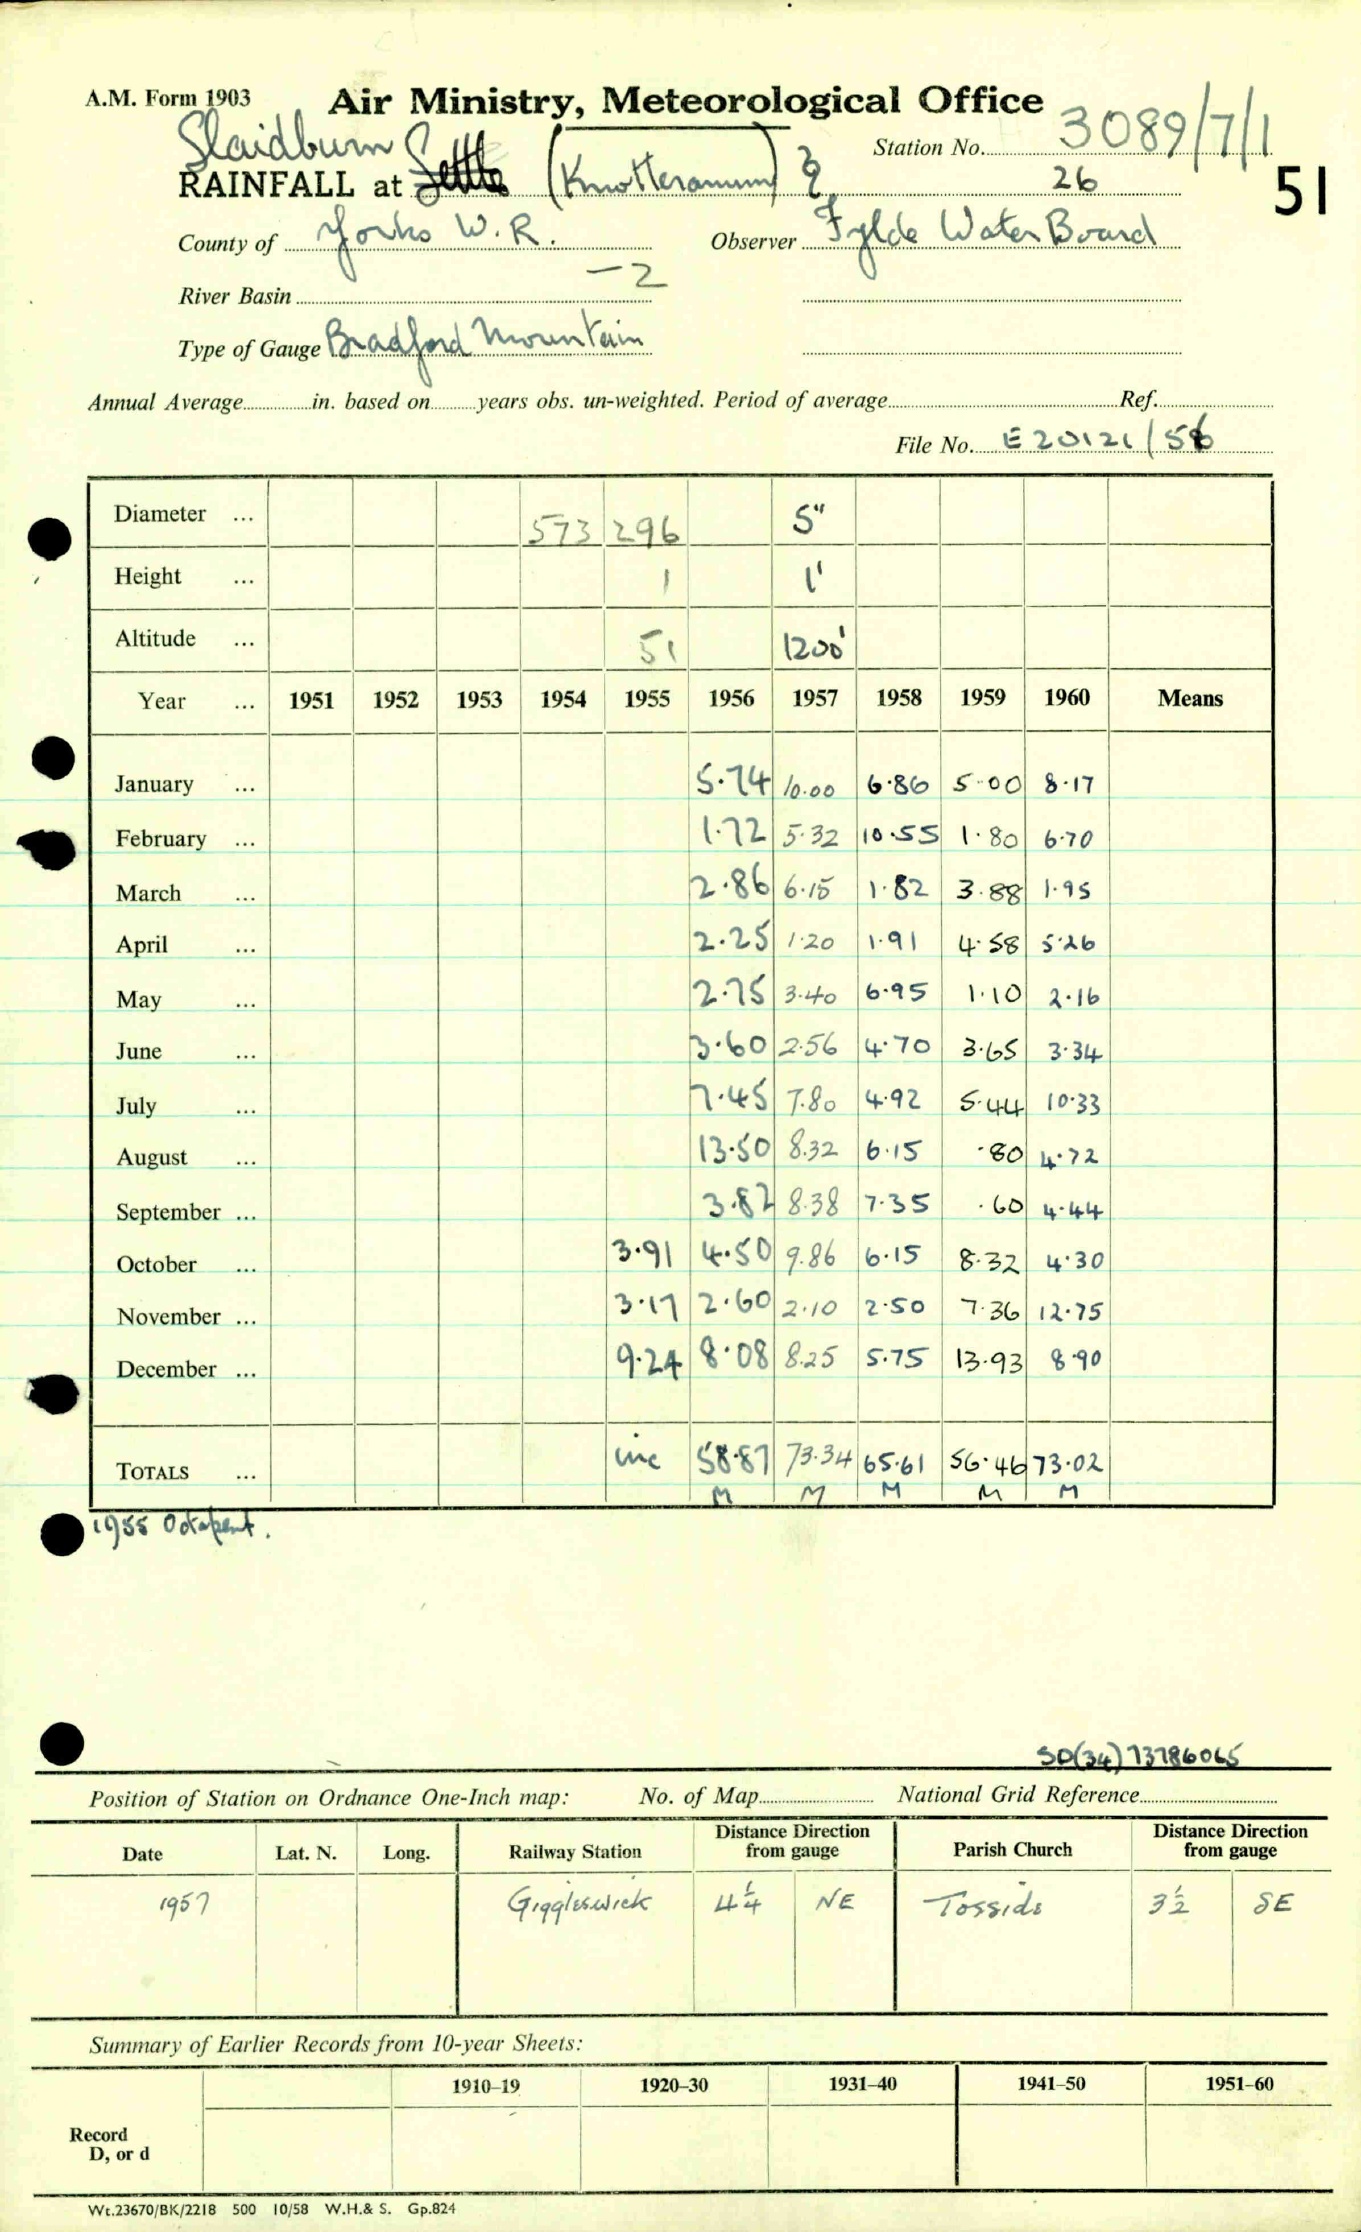 A.M. Form 1903 Air Ministry, Meteorological Office
Slaidburn Station No. 3089/7/1
RAINFALL at Settle (Knotteranum) 26 51
County of Yorks W.R. Observer Fylde Water Board
River Basin -2
Type of Gauge Bradford Mountain
Annual Average in. based on years obs. un-weighted. Period of average Ref.
File No. E20121/56
Diameter ... 573 296 5"
Height ... 1 1'
Altitude ... 51 1200'
Year ... 1951 1952 1953 1954 1955 1956 1957 1958 1959 1960 Means
January ... 5.74 10.00 6.86 5.00 8.17
February ... 1.72 5.32 10.55 1.80 6.70
March ... 2.86 6.15 1.82 3.88 1.95
April ... 2.25 1.20 1.91 4.58 5.26
May ... 2.75 3.40 6.95 1.10 2.16
June ... 3.60 2.56 4.70 3.65 3.34
July ... 7.45 7.80 4.92 5.44 10.33
August ... 13.50 8.32 6.15 .80 4.72
September ... 3.82 8.38 7.35 .60 4.44
October ... 3.91 4.50 9.86 6.15 8.32 4.30
November ... 3.17 2.60 2.10 2.50 7.36 12.75
December ... 9.24 8.08 8.25 5.75 13.93 8.90
TOTALS ... inc 58.87 73.34 65.61 56.46 73.02
M M M M M
1955 Octapent.
SD(34)73786065
Position of Station on Ordnance One-Inch map: No. of Map National Grid Reference
Date Lat. N. Long. Railway Station Distance Direction from gauge Parish Church Distance Direction from gauge
1957 Giggleswick 4¼ NE Tosside 3½ SE
Summary of Earlier Records from 10-year Sheets:
1910-19 1920-30 1931-40 1941-50 1951-60
Record
D, or d
Wt.23670/BK/2218 500 10/58 W.H.& S. Gp.824